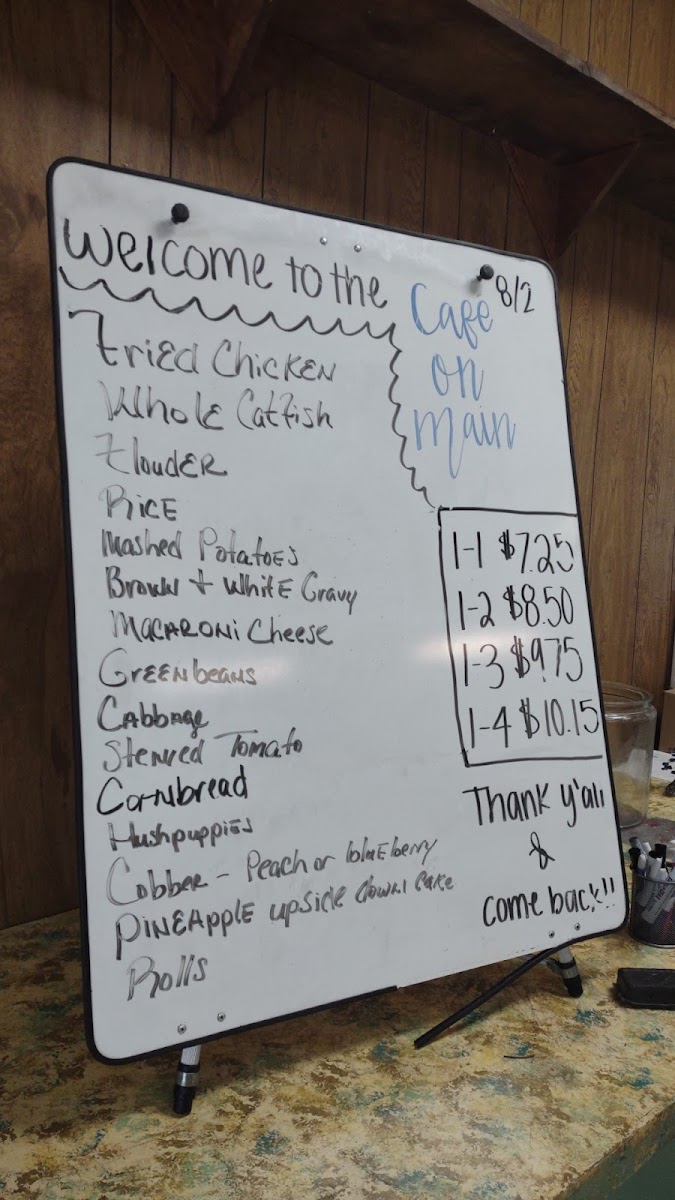 Welcome to the
Cafe
on
main
8/2
Fried Chicken
Whole Catfish
Flouder
Rice
Mashed Potatoes
Brown + White Gravy
Macaroni Cheese
Greenbeans
Cabbage
Stewed Tomato
Cornbread
Hushpuppies
Cobber - Peach or blueberry
Pineapple upside down cake
Rolls
1-1 $7.25
1-2 $8.50
1-3 $9.75
1-4 $10.15
Thank y'all
&
come back!!